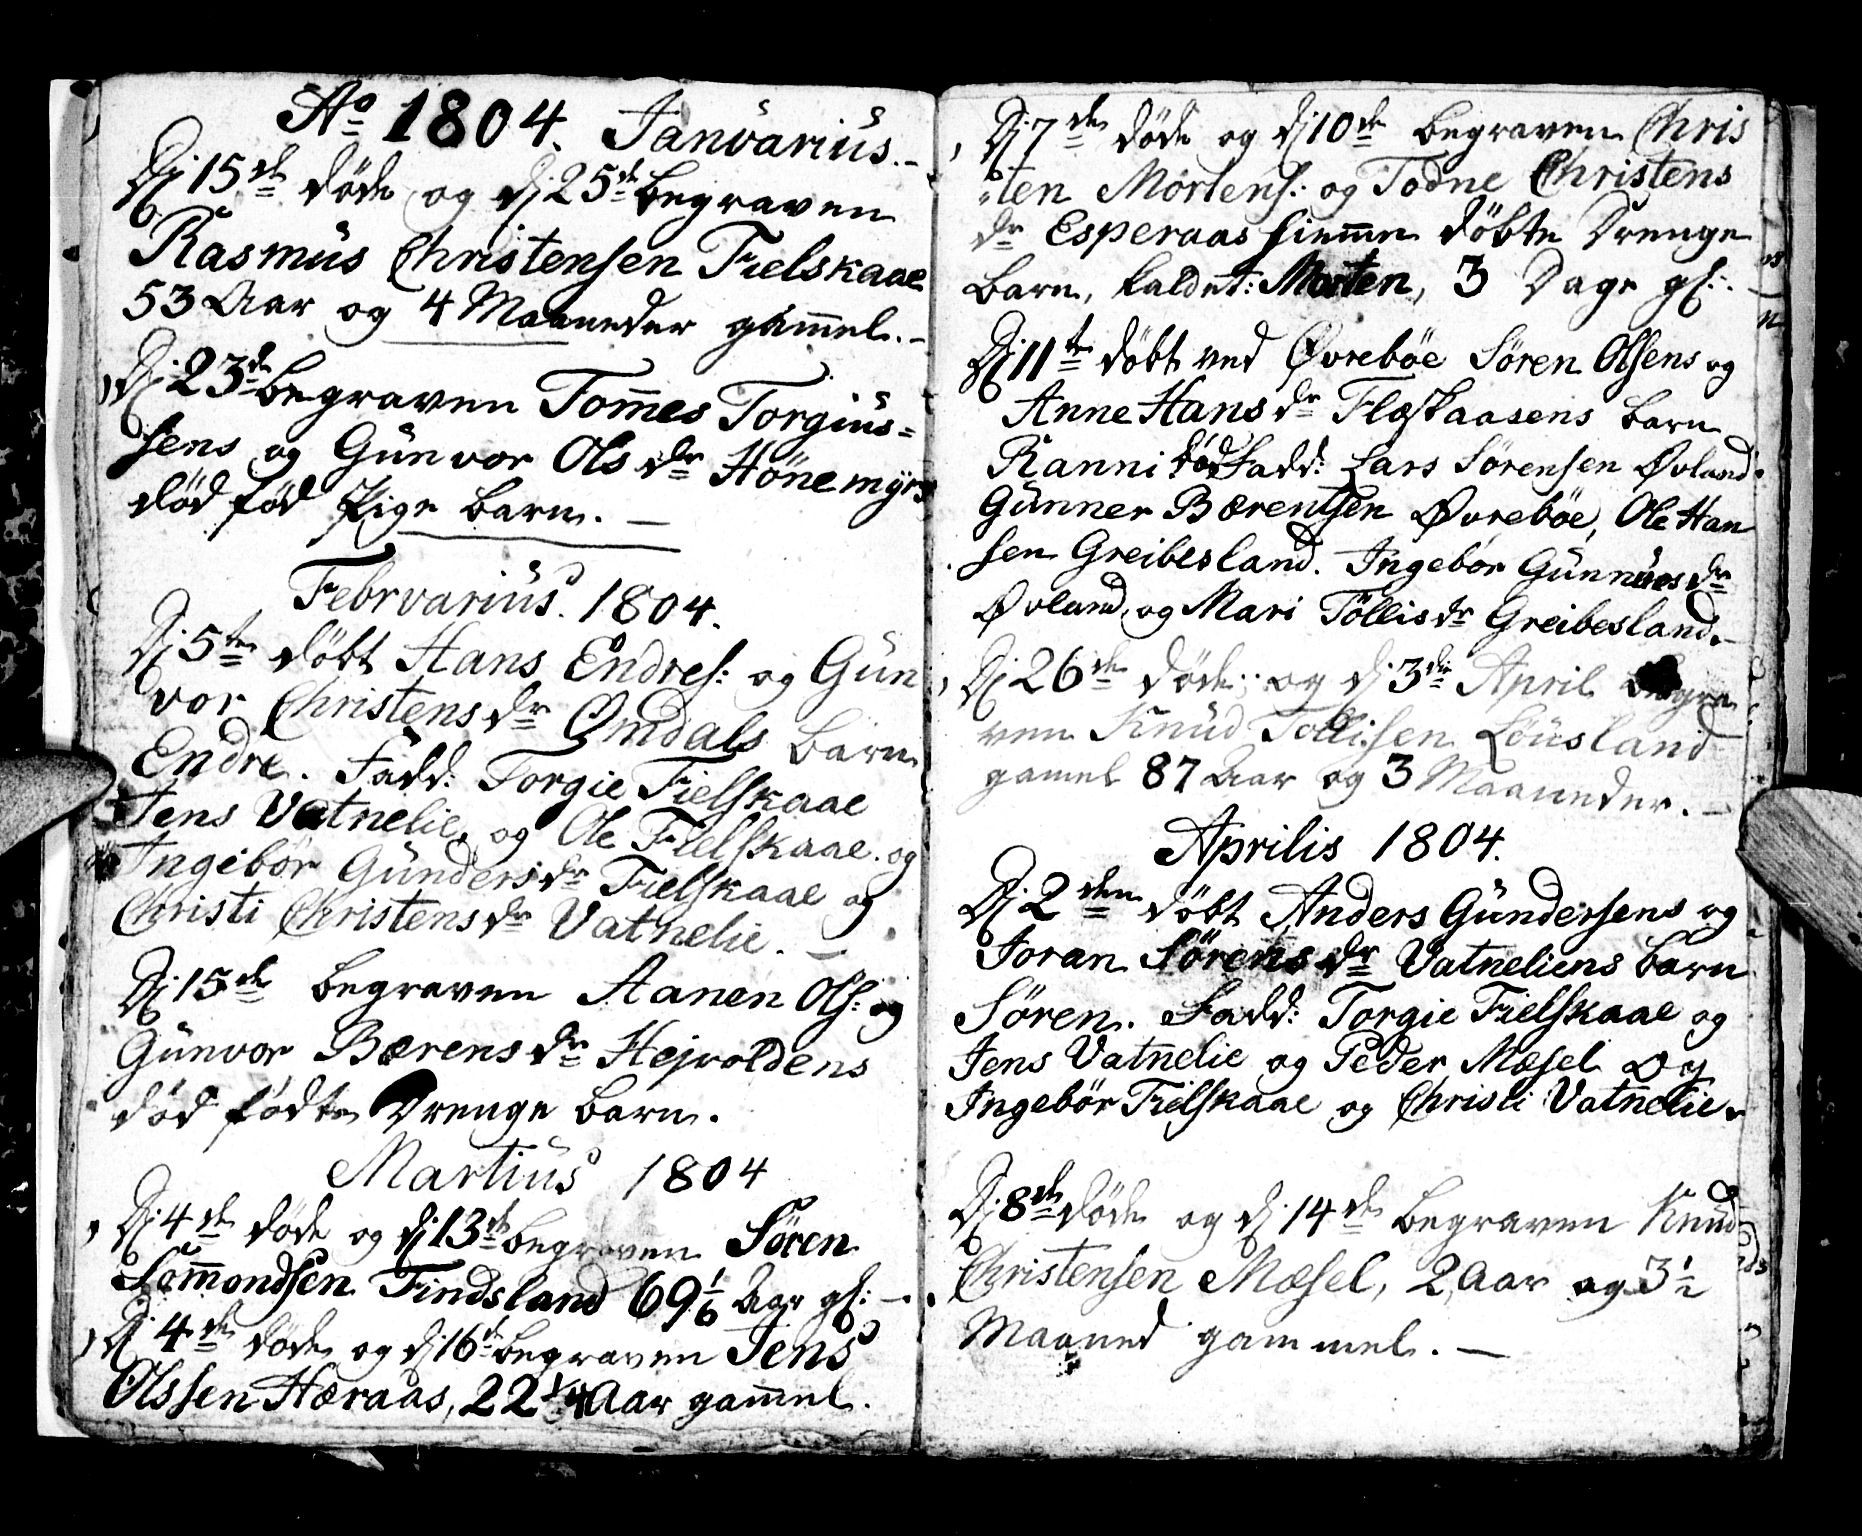 Ao 1804. Januarius.
Dj 15de døde og dj 25de begraven
Rasmus Christensen Fielskaae
53 Aar og 4 Maaneder gam̄el.
Dj 23de begraven Tom̄es Torgius=
sens og Gunvor Olsdr Hönemyrs
død fød Pige barn.
Februarius. 1804.
Dj 5te döbt Hans Endres: og Gun
vor Christensdr Omdals barn
Endre. Fadd: Torgie Fielskaae
Jens Vatnelie, og Ole Fielskaae. og
Ingebör Gundersdr Fielskaae og
Christi Christensdr Vatnelie.
Dj 15de begraven Aanen Ols: og
Gunvor Bærensdr Hejvoldens
død fødte Drenge barn.
Martius 1804
Dj 4de døde og dj 13de begraven Sören
Som̄ondsen Findsland 69 1/6 Aar gl:
Dj 4de døde og dj 16de begraven Jens
Olssen Hæraas, 22 1/4 Aar gam̄el.
Dj 7de døde og dj 10de begraven Chris
"ten Mortens: og Todne Christens
dr Esperaas hiem̄e döbte Drenge
barn, kaldet: Morten, 3 Dage gl:
Dj 11te döbt ved Øvrebøe Sören Olsens og
Anne Hansdr Flaskaasens barn
Ranni død Fadd: Lars Sörensen Øvland
Gunner Bærentsen Øvrebøe, Ole Han
sen Greibesland. Ingebör Gunnersdr
Øvland, og Mari Töllisdr Greibesland.
Dj 26de døde og dj 3die April begra
ven Knud Tollisen Löusland
gamel 87 Aar og 3 Maaneder.
Aprilis 1804.
Dj 2den döbt Anders Gundersens og
Joran Sörensdr Vatneliens barn
Sören. Fadd: Torgie Fielskaae og
Jens Vatnelie og Peder Mæsel og
Ingebör Fielskaae og Christi Vatnelie.
Dj 8de døde og dj 14de begraven Knud
Christensen Mæsel, 2 Aar og 3 1/2
Maaned gammel.